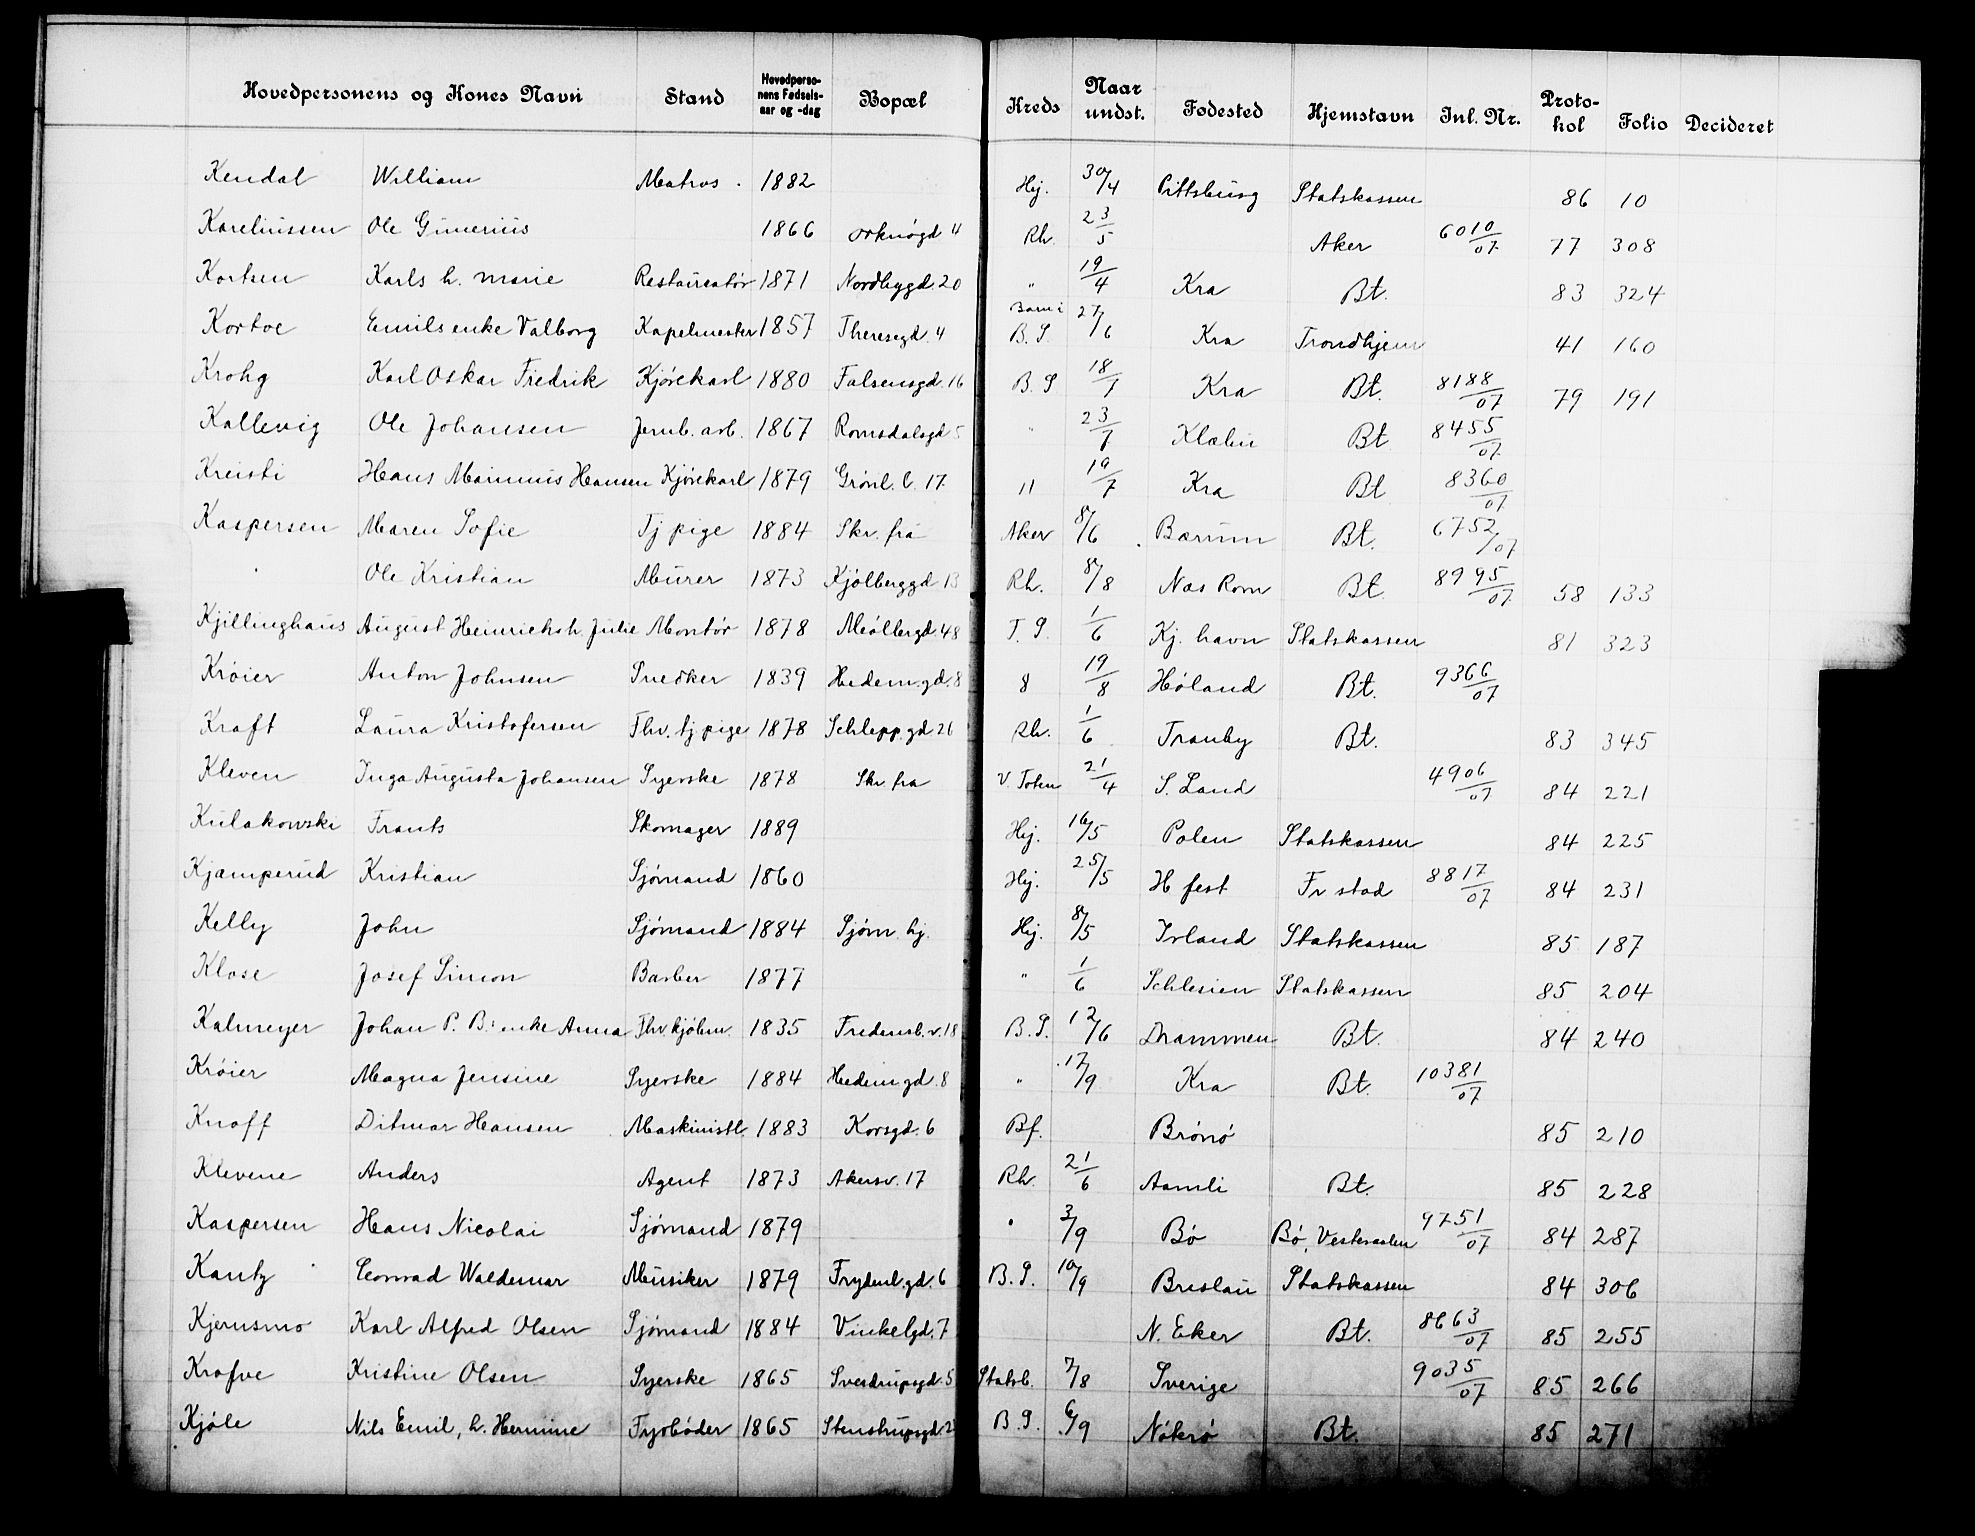 Hovedpersonens og Kones Navn Stand Hovedpersonens Fødsels-aar og -dag Bopæl Kreds Naar undst. Fødested Hjemstavn Inl. Nr. Protokol Folio Decideret
Kendal William Matros 1882 Hj. 30/4 Pittsburg Statskassen 86 10
Kareliussen Ole Gunerius 1866 Orknøgd 4 Rh. 23/5 Aker 6010/07 77 308
Kortsen Karls h. Marie Restauratør 1871 Nordbygd. 20 " 19/4 Kra Bt. 83 324
Kortoe Emils enke Valborg Kapelmester 1857 Theresegd. 4 Barn i B. S. 27/6 Kra Trondhjem 41 160
Krohg Karl Oskar Fredrik Kjørekarl 1880 Falsensgd. 16 B. S 18/7 Kra Bt. 8188/07 79 191
Kallevig Ole Johansen Jernb. arb. 1867 Romsdalsgd 5 " 23/7 Klæbu Bt 8455/07
Kreisti Hans Marinius Hansen Kjørekarl 1879 Grønl. l. 17. 11 19/7 Kra Bt 8360/07
Kaspersen Maren Sofie Tj pige 1884 Skr. fra Aker 8/6 Bærum Bt. 6752/07
" Ole Kristian Murer 1873 Kjølberggd 13 Rh. 8/8 Næs Rom Bt. 8995/07 58 133
Kjillinghaus August Heinrichs h. Julie Montør 1878 Møllergd. 48 T. S. 1/6 Kj. havn Statskassen 81 323
Krøier Anton Johnsen Snedker 1839 Hedem.gd. 8 8 19/8 Høland Bt. 9366/07
Kraft Laura Kristofersen Fhv. tj pige 1878 Schlepp.gd 26 Rh. 1/6 Tranby Bt. 83 345
Kleven Inga Augusta Johansen Syerske 1878 Skr. fra V. Toten 21/4 S. Land 4906/07 84 221
Kulakowski Frants Skomager 1889 Hj. 16/5 Polen Statskassen 84 225
Kjæmperud Kristian Sjømand 1860 Hj. 25/5 H fest Fr stad 8817/07 84 231
Kelly John Sjømand 1884 Sjøm. hj. Hj. 8/5 Irland Statskassen 85 187
Klose Josef Simon Barber 1877 " 1/6 Schlesien Statskassen 85 204
Kalmeyer Johan P. B. enke Anna Fhv. kjøbm. 1835 Fredensb. v. 18 B. S. 12/6 Drammen Bt. 84 240
Krøier Magna Jensine Syerske 1884 Hedem gd. 8 " 17/9 Kra Bt. 10381/07
Knoff Ditmar Hansen Maskinistl. 1883 Korsgd. 6 Bf. Brønø 85 210
Klevene Anders Agent 1873 Akersv. 17 Rh. 21/6 Aamli Bt. 85 228
Kaspersen Hans Nicolai Sjømand 1879 " 3/9 Bø Bø, Vesteraalen 9751/07 84 287
Kantz Conrad Waldemar Musiker 1879 Frydenl.gd. 6 B. S. 10/9 Breslau Statskassen 84 306
Kjernsmo Karl Alfred Olsen Sjømand 1884 Vinkelgd. 7 N. Eker Bt. 8663/07 85 255
Krafve Kristine Olsen Syerske 1865 Sverdrupsgd. 5 Statsb. 7/8 Sverige 9035/07 85 266
Kjøle Nils Emil, h. Hermine Fyrbøder 1865 Stenstrupsgd. B. S. 6/9 Nøkrø Bt. 85 271